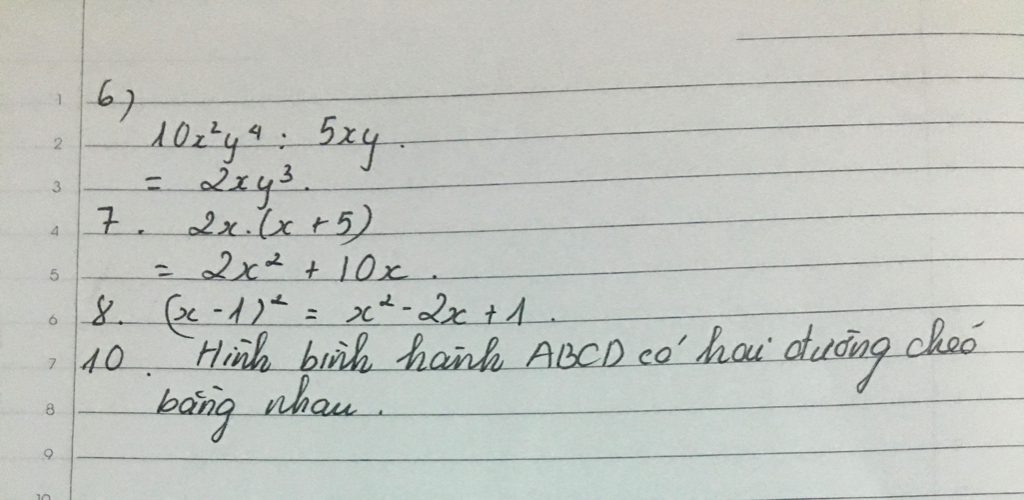 6)
10x²y⁴ : 5xy.
= 2xy³.
7. 2x.(x + 5)
= 2x² + 10x.
8. (x - 1)² = x² - 2x + 1.
10. Hình bình hành ABCD có hai đường chéo
bằng nhau.
1
2
3
4
5
6
7
8
9
10